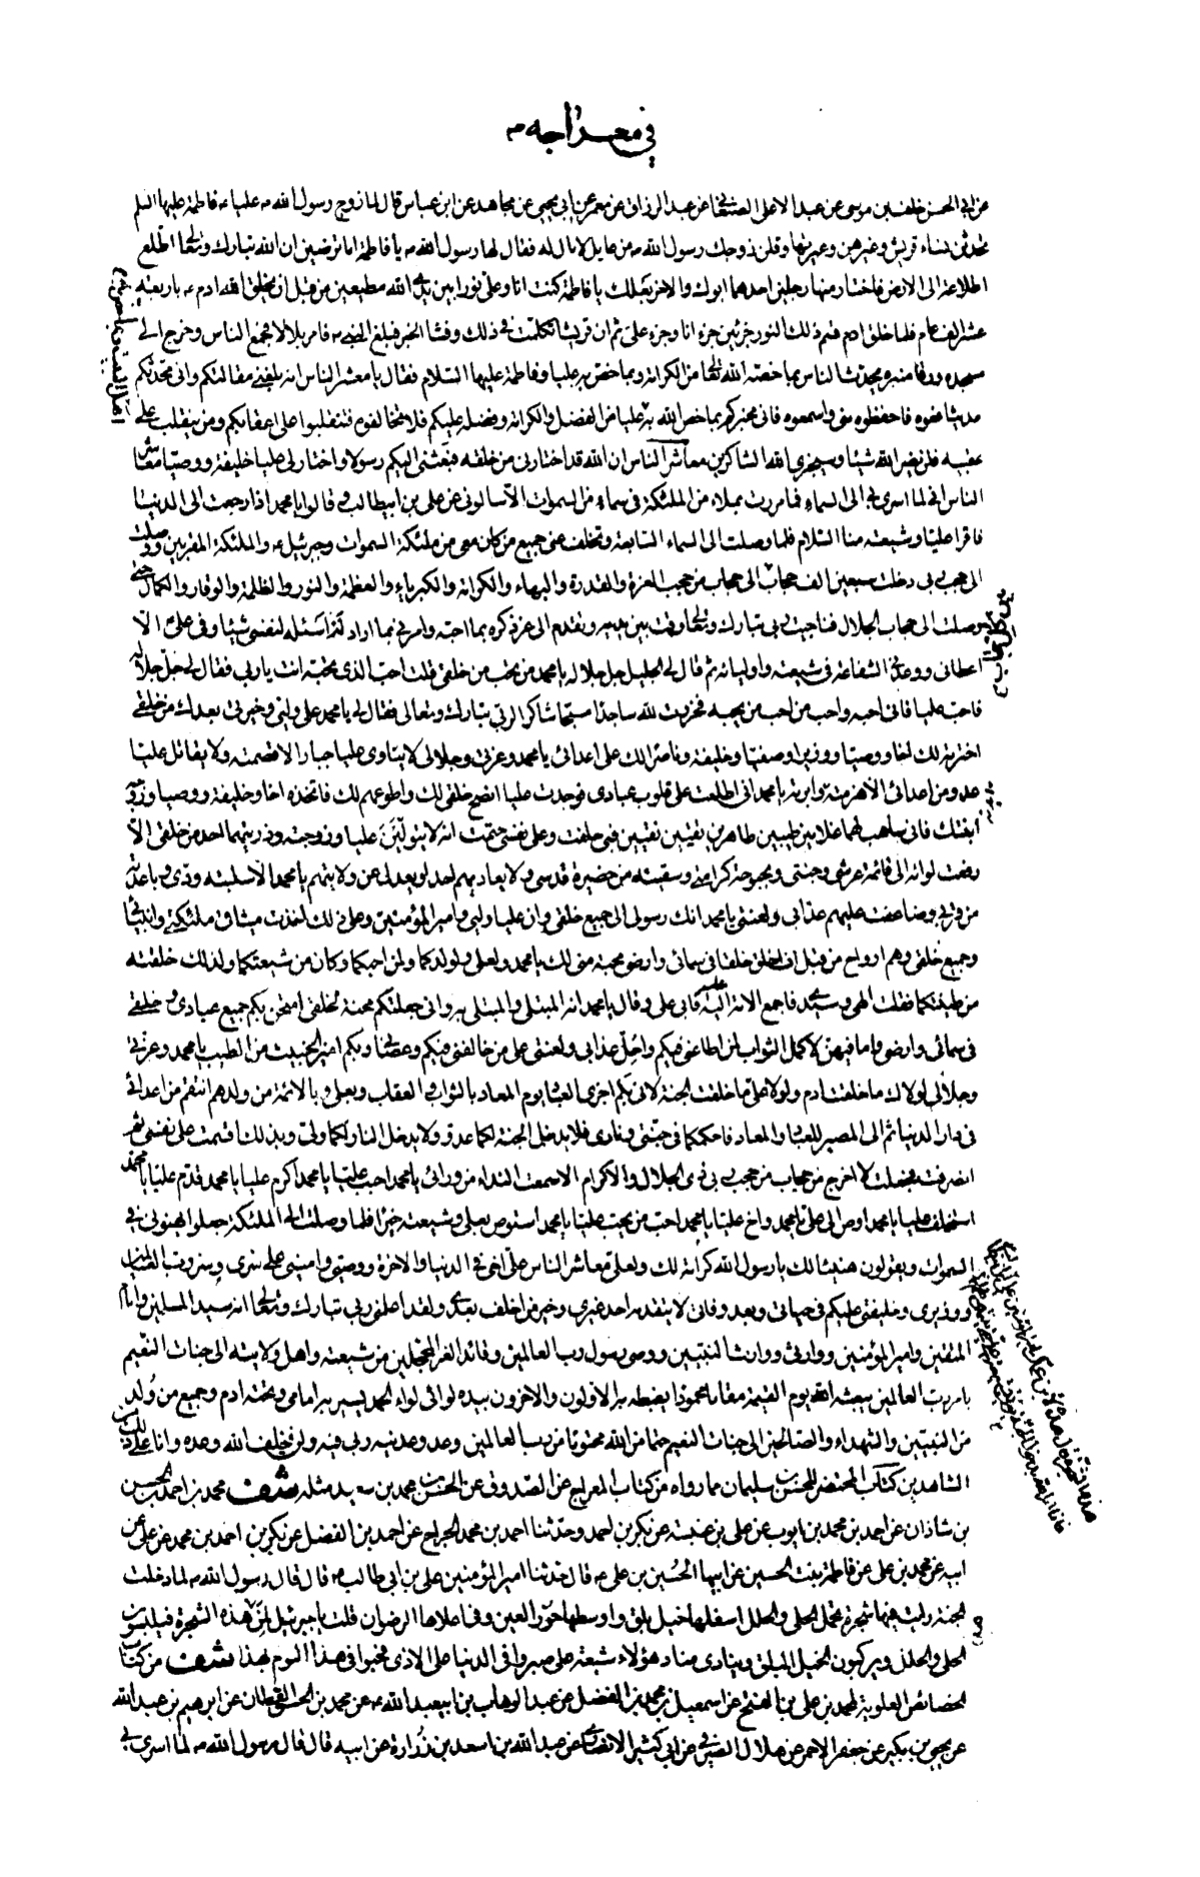 في معراجه ص
عن ابي الحسن خلف بن موسى عن عبد الاعلى الصنعاني عن عبد الرزاق عن معمر عن ابي يحيى عن مجاهد عن ابن عباس قال لما زوج رسول الله ص عليا ع فاطمة عليها السلم
تحدثن نساء قريش وغيرهن وعيرنها وقلن زوجك رسول الله ص من عايل لا مال له فقال لها رسول الله ص يا فاطمة اما ترضين ان الله تبارك وتعالى اطلع
اطلاعة الى الارض فاختار منها رجلين احدهما ابوك والاخر بعلك يا فاطمة كنت انا وعلي نورا بين يدي الله مطيعين من قبل ان يخلق الله ادم ع باربعة
عشر الف عام فلما خلق ادم قسم ذلك النور جزئين جزء انا وجزء علي ثم ان قريشا تكلمت في ذلك وفشا الخبر فبلغ النبي ص فامر بلالا فجمع الناس وخرج الى
مسجده ورقا منبره يحدث الناس بما خصه الله تعالى من الكرامة وبما خص به عليا وفاطمة عليها السلام فقال يا معشر الناس انه بلغني مقالتكم واني محدثكم
حديثا فعوه فاحفظوه مني واسمعوه فاني مخبركم بما خص الله به عليا من الفضل والكرامة وفضله عليكم فلا تخالفوه فتنقلبوا على اعقابكم ومن ينقلب على
عقبيه فلن يضر الله شيئا وسيجزي الله الشاكرين معاشر الناس ان الله قد اختارني من خلقه فبعثني اليكم رسولا واختار لي عليا خليفة ووصيا معاشر
الناس اني لما اسري بي الى السماء فما مررت بملاء من الملئكة في سماء من السموات الا سالوني عن علي بن ابيطالب و قالوا يا محمد اذا رجعت الى الدنيا
فاقرا عليا وشيعته منا السلام فلما وصلت الى السماء السابعة وتخلف عني جميع من كان معي من ملئكة السموات وجبرئيل ع والملئكة المقربين ووصلت
الى حجب ربي دخلت سبعين الف حجاب الى حجاب من حجب العزة والقدرة والبهاء والكرامة والكبرياء والعظمة والنور والظلمة والوقار والكمال حتى
وصلت الى حجاب الجلال فناجيت ربي تبارك وتعالى وقمت بين يديه وتقدم الى عز ذكره بما احبه وامرني بما اراد لم اسئله لنفسي شيئا وفي علي الا
اعطاني ووعدني الشفاعة في شيعته واوليائه ثم قال لي الجليل جل جلاله يا محمد من تحب من خلقي قلت احب الذي تحبه انت يا ربي فقال لي جل جلاله
فاحب عليا فاني احبه واحب من احب من يحبه فخررت لله ساجدا مسبحا شاكرا لربي تبارك وتعالى فقال لي يا محمد علي وليي وخيرتي بعدك من خلقي
اخترته لك اخا ووصيا ووزيرا وصفيا وخليفة وناصرا لك على اعدائي يا محمد وعزتي وجلالي لا يناوى عليا جبار الا قصمته ولا يقاتل عليا
عدو من اعدائي الا هزمته وابرته يا محمد اني اطلعت على قلوب عبادي فوجدت عليا انصح خلقي لك واطوعهم لك فاتخذه اخا وخليفة ووصيا وزوج
ابنتك فاني ساهب لهما غلامين طيبين طاهرين تقيين نقيين فبي حلفت وعلى نفسي حتمت انه لا يتولين عليا وزوجته وذريتهما احد من خلقي الا
رفعت لوائه الى قائمة عرشي وجنتي وبحبوحة كرامتي وسقيته من حضيرة قدسي ولا يعاديهم احد او يعدل عن ولايتهم يا محمد الا سلبته ودي وباعدته
من قربي وضاعفت عليهم عذابي ولعنتي يا محمد انك رسولي الى جميع خلقي وان عليا وليي وامير المؤمنين وعلى ذلك اخذت ميثاق ملئكتي وانبيائي
وجميع خلقي وهم ارواح من قبل ان اخلق خلقا في سمائي وارضي محبة مني لك يا محمد ولعلي ولولدكما ولمن احبكما وكان من شيعتكما ولذلك خلقته
من طينتكما فقلت الهي وسيدي فاجمع الامة عليه فابى علي وقال يا محمد انه المبتلى والمبتلى به واني جعلتكم محنة لخلقي امتحن بكم جميع عبادي و خلقي
في سمائي وارضي وما فيهن لاكمل الثواب لمن اطاعني فيكم واحل عذابي ولعنتي على من خالفني فيكم وعصاني وبكم اميز الخبيث من الطيب يا محمد وعزتي
وجلالي لولاك ما خلقت ادم ولولا علي ما خلقت الجنة لاني بكم اجزي العباد يوم المعاد بالثواب والعقاب وبعلي وبالائمة من ولدهم انتقم من اعدائي
في دار الدنيا ثم الي المصير للعباد والمعاد فاحكمكما في جنتي وناري فلا يدخل الجنة لكما عدو ولا يدخل النار لكما ولي وبذلك اقسمت على نفسي ثم
انصرفت فجعلت لا اخرج من حجاب من حجب ربي ذي الجلال والاكرام الا سمعت النداء من ورائي يا محمد احبب عليا يا محمد اكرم عليا يا محمد قدم عليا يا محمد
استخلف عليا يا محمد اوص الى علي يا محمد واخ عليا يا محمد احب من يحب عليا يا محمد استوص بعلي وشيعته خيرا فلما وصلت الى الملئكة جعلوا يهنوني في
السموات ويقولون هنيئا لك يا رسول الله كرامة لك ولعلي معاشر الناس علي اخي في الدنيا والاخرة ووصيي واميني على سري وسر رب العالمين
ووزيري وخليفتي عليكم في حياتي وبعد وفاتي لا يتقدمه احد غيري وخير من اخلف بعدي ولقد اعلمني ربي تبارك وتعالى انه سيد المسلمين وامام
المتقين وامير المؤمنين ووارثي ووارث النبيين ووصي رسول رب العالمين وقائد الغر المحجلين من شيعته واهل ولايته الى جنات النعيم
بامر رب العالمين يبعثه الله يوم القيمة مقاما محمودا يغبطه به الاولون والاخرون بيده لوائي لواء الحمد يسير به امامي وتحته ادم وجميع من ولد
من النبيين والشهداء والصالحين الى جنات النعيم حتما من الله محتوما من رب العالمين وعد وعدنيه ربي فيه ولن يخلف الله وعده وانا على ذلك من
الشاهدين كتاب المحتضر للحسن بن سليمان مما رواه من كتاب المعراج عن الصدوق عن الحسن بن محمد بن سعيد مثله شف محمد بن احمد بن الحسن
بن شاذان عن احمد بن محمد بن ايوب عن علي بن عنبسة عن بكر بن احمد وحدثنا احمد بن محمد الجراح عن احمد بن الفضل عن بكر بن احمد بن محمد عن علي عن
ابيه عن محمد بن علي عن فاطمة بنت الحسين عن ابيها الحسين بن علي ع قال حدثنا امير المؤمنين علي بن ابي طالب ع قال قال رسول الله ص لما دخلت
الجنة رايت فيها شجرة تحمل الحلي والحلل اسفلها خيل بلق واوسطها حور العين وفي اعلاها الرضوان قلت يا جبرئيل لمن هذه الشجرة فيلبسون
الحلي والحلل ويركبون الخيل البلق وينادي مناد هؤلاء شيعة علي صبروا في الدنيا على الاذى فحبوا في هذا اليوم بهذا شف من كتاب
الخصائص العلوية لمحمد بن علي بن الفتح عن اسمعيل بن محمد بن الفضل عن عبد الوهاب بن ابيعبد الله عن محمد بن الحسن القطان عن ابرهيم بن عبد الله
عن يحيى بن بكير عن جعفر الاحمر عن هلال الصيرفي عن ابي كثير الانصاري عن عبد الله بن اسعد بن زرارة عن ابيه قال قال رسول الله ص لما اسري بي